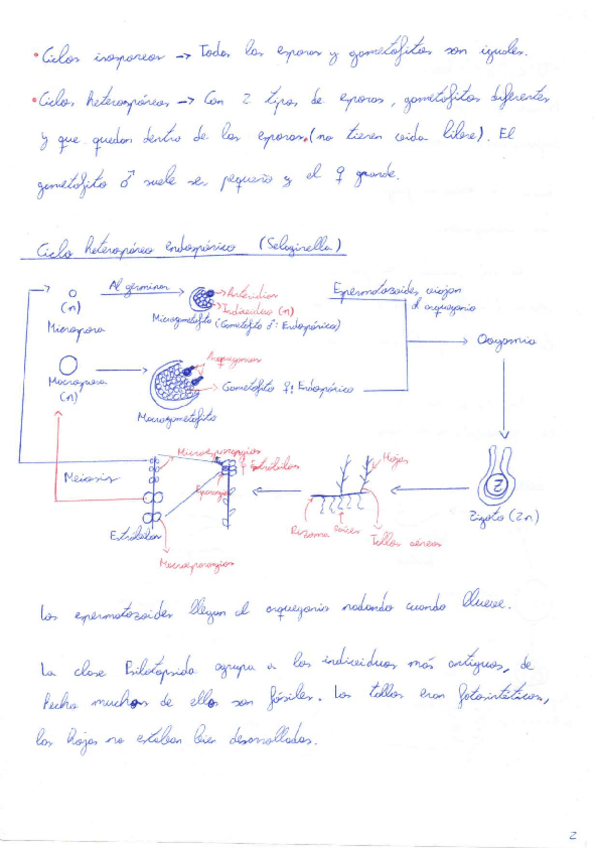 • Ciclos isospóreos → Todas las esporas y gametofitos son iguales.
• Ciclos heterospóreos → Con 2 tipos de esporas, gametofitos diferentes
y que quedan dentro de las esporas (no tienen vida libre). El
gametofito ♂ suele ser pequeño y el ♀ grande.
Ciclo heterospóreo endospórico (Selaginella)
(n)
Microspora
Al germinar
Anteridios
Individuo (n)
Microgametofito (Gametofito ♂: Endospórico)
Espermatozoides viajan
al arquegonio
Oogamia
Macrospora
(n)
Arquegonios
Gametofito ♀: Endospórico
Macrogametofito
Meiosis
Microesporangios
Estróbilos
Esporangios
Estróbilos
Macroesporangios
Hojas
Rizoma
Raíces
Tallos aéreos
Z
Zigoto (2n)
Los espermatozoides llegan al arquegonio nadando cuando llueve.
La clase Psilotopsida agrupa a los individuos más antiguos, de
hecho muchos de ellos son fósiles. Los tallos eran fotosintéticos,
las hojas no estaban bien desarrolladas.
2